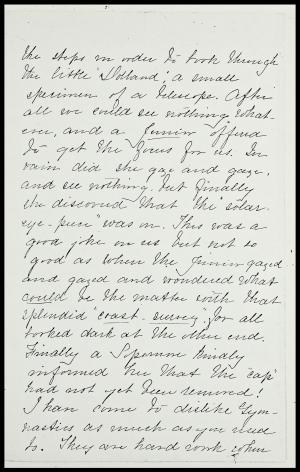 the steps in order to look through
the little "Dolland", a small
specimen of a telescope. After
all we could see nothing what
ever, and a Junior offered
to get the focus for us. In
vain did she gaze and gaze,
and see nothing, but finally
she discovered that the "solar
eye-piece" was on. This was a
good joke on us but not so
good as when the Junior gazed
and gazed and wondered what
could be the matter with that
splendid "coast-survey", for all
looked dark at the other end.
Finally a Sophomore kindly
informed her that the "cap"
had not yet been removed!
I have come to dislike Gym-
nastics as much as you used
to. They are hard work when